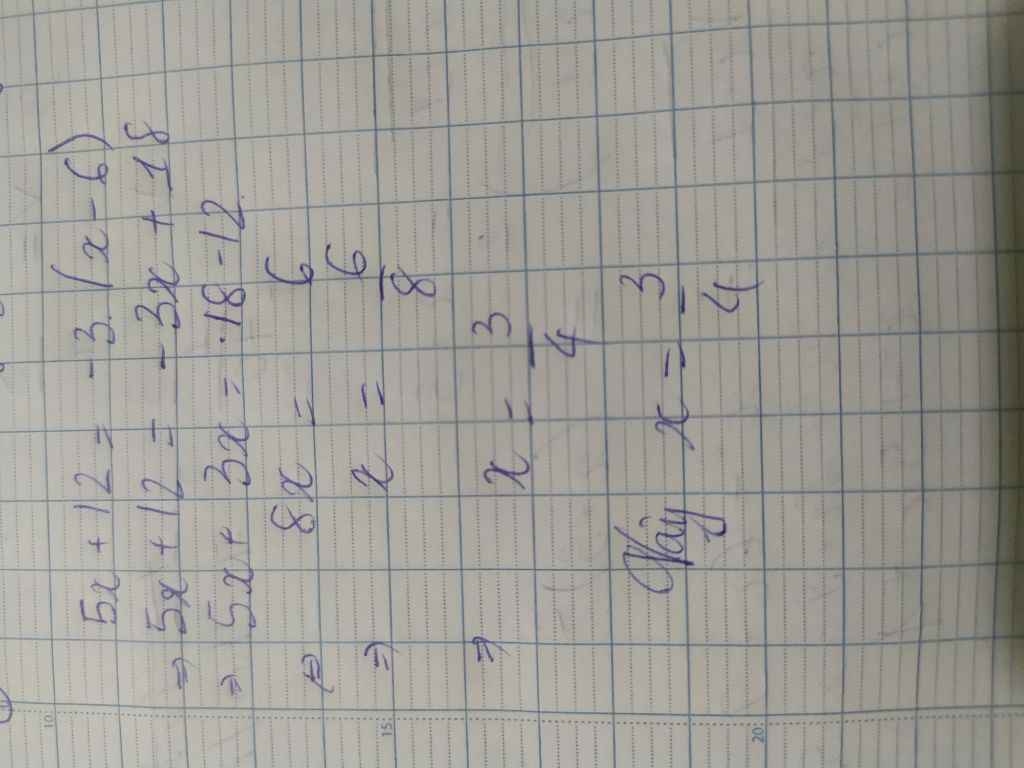 5x + 12 = -3 (x - 6)
⇒ 5x + 12 = -3x + 18
⇒ 5x + 3x = 18 - 12
⇒ 8x = 6
⇒ x = 6/8
⇒ x = 3/4
Vậy x = 3/4
10
15
20